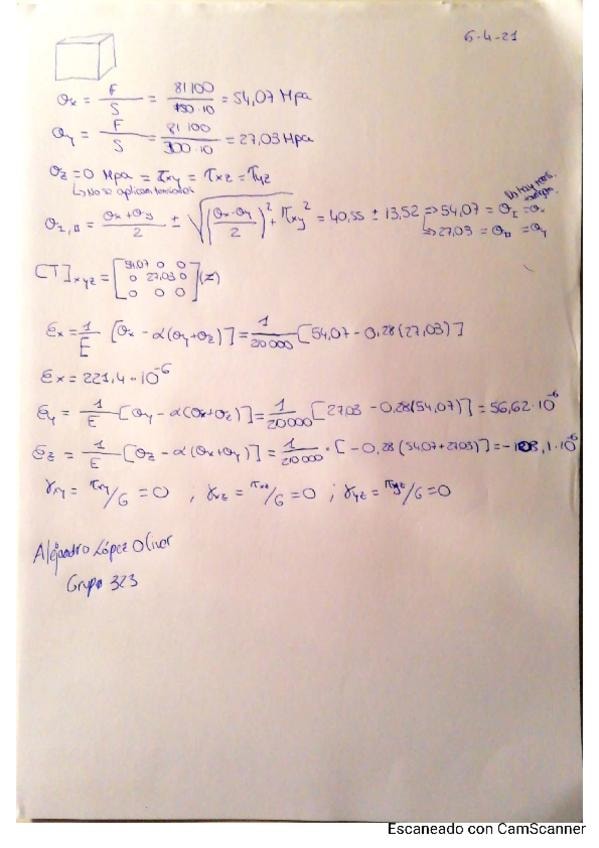 6-4-21
σx = F/S = 81100/150·10 = 54,07 Mpa
σy = F/S = 81100/300·10 = 27,03 Mpa
σz = 0 Mpa = τxy = τxz = τyz
↳ No se aplican
σI,II = σx+σy/2 ± √((σx-σy/2)² + τxy²) = 40,55 ± 13,52 ⇒ 54,07 = σI = σx
↳ 27,03 = σII = σy
[T]xyz = [54,07 0 0
0 27,03 0
0 0 0]
εx = 1/E [σx - α(σy+σz)] = 1/210000 [54,07 - 0,28(27,03)]
εx = 221,4·10⁻⁶
εy = 1/E [σy - α(σx+σz)] = 1/210000 [27,03 - 0,28(54,07)] = 56,62·10⁻⁶
εz = 1/E [σz - α(σx+σy)] = 1/210000 · [-0,28(54,07+27,03)] = -108,1·10⁻⁶
γxy = τxy/G = 0 ; γxz = τxz/G = 0 ; γyz = τyz/G = 0
Alejandro López Oliver
Grupo 323
Escaneado con CamScanner